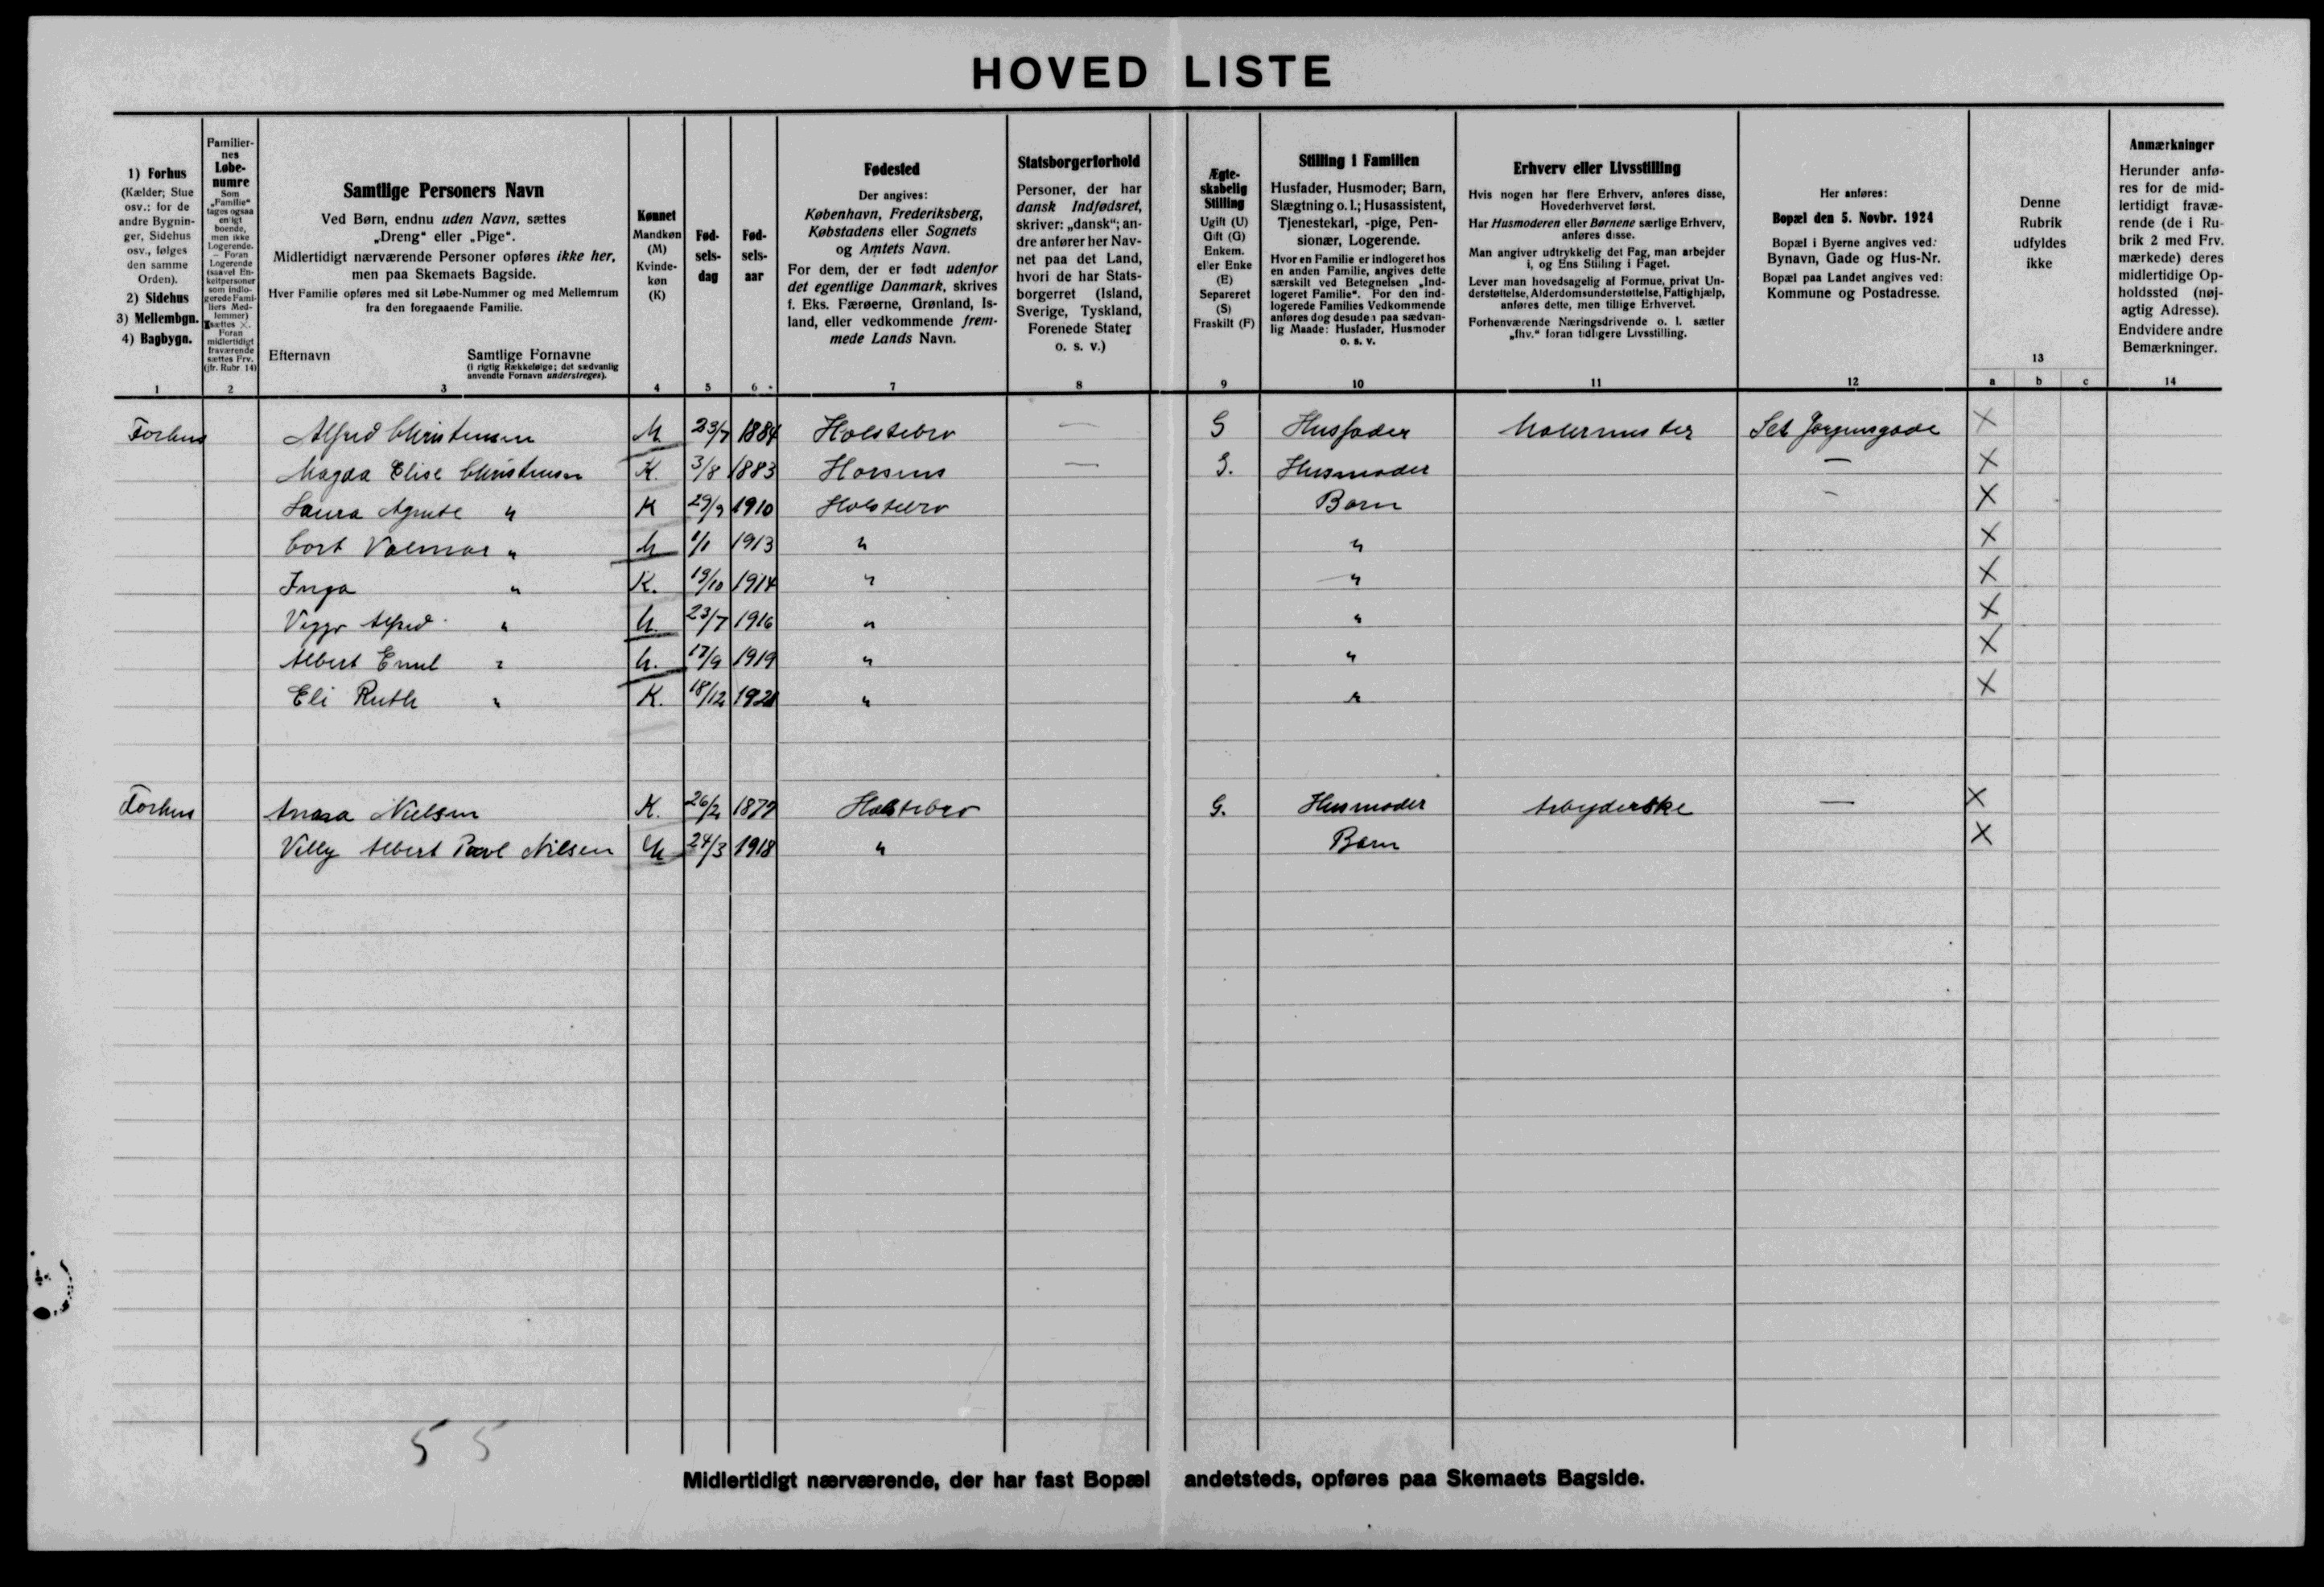 HOVED LISTE
1) Forhus
(Kælder; Stue
osv.; for de
andre Bygnin-
ger, Sidehus
osv., følges
den samme
Orden).
2) Sidehus
3) Mellembgn.
4) Bagbygn.
1
Familier-
nes
Løbe-
numre
Som
„Familie“
tages ogsaa
enligt
boende,
men ikke
Logerende.
— Foran
Logerende
(saavel En-
keltpersoner
som indlo-
gerede Fami-
liers Med-
lemmer)
sættes ×.
Foran
midlertidigt
fraværende
sættes Frv.
(jfr. Rubr 14)
2
Samtlige Personers Navn
Ved Børn, endnu uden Navn, sættes
„Dreng“ eller „Pige“.
Midlertidigt nærværende Personer opføres ikke her,
men paa Skemaets Bagside.
Hver Familie opføres med sit Løbe-Nummer og med Mellemrum
fra den foregaaende Familie.
Efternavn Samtlige Fornavne
(i rigtig Rækkefølge; det sædvanlig
anvendte Fornavn understreges).
3
Kønnet
Mandkøn
(M)
Kvinde-
køn
(K)
4
Fød-
sels-
dag
5
Fød-
sels-
aar
6
Fødested
Der angives:
København, Frederiksberg,
Købstadens eller Sognets
og Amtets Navn.
For dem, der er født udenfor
det egentlige Danmark, skrives
f. Eks. Færøerne, Grønland, Is-
land, eller vedkommende frem-
mede Lands Navn.
7
Statsborgerforhold
Personer, der har
dansk Indfødsret,
skriver: „dansk“; an-
dre anfører her Nav-
net paa det Land,
hvori de har Stats-
borgerret (Island,
Sverige, Tyskland,
Forenede Stater
o. s. v.)
8
Ægte-
skabelig
Stilling
Ugift (U)
Gift (G)
Enkem.
eller Enke
(E)
Separeret
(S)
Fraskilt (F)
9
Stilling i Familien
Husfader, Husmoder; Barn,
Slægtning o. l.; Husassistent,
Tjenestekarl, -pige, Pen-
sionær, Logerende.
Hvor en Familie er indlogeret hos
en anden Familie, angives dette
særskilt ved Betegnelsen „Ind-
logeret Familie“. For den ind-
logerede Families Vedkommende
anføres dog desuden paa sædvan-
lig Maade: Husfader, Husmoder
o. s. v.
10
Erhverv eller Livsstilling
Hvis nogen har flere Erhverv, anføres disse,
Hovederhvervet først.
Har Husmoderen eller Børnene særlige Erhverv,
anføres disse.
Man angiver udtrykkelig det Fag, man arbejder
i, og Ens Stilling i Faget.
Lever man hovedsagelig af Formue, privat Un-
derstøttelse, Alderdomsunderstøttelse, Fattighjælp,
anføres dette, men tillige Erhvervet.
Forhenværende Næringsdrivende o. l. sætter
„fhv.“ foran tidligere Livsstilling.
11
Her anføres:
Bopæl den 5. Novbr. 1924
Bopæl i Byerne angives ved:
Bynavn, Gade og Hus-Nr.
Bopæl paa Landet angives ved:
Kommune og Postadresse.
12
Denne
Rubrik
udfyldes
ikke
13
a b c
Anmærkninger
Herunder anfø-
res for de mid-
lertidigt fravæ-
rende (de i Ru-
brik 2 med Frv.
mærkede) deres
midlertidige Op-
holdssted (nøj-
agtig Adresse).
Endvidere andre
Bemærkninger.
14
Forhus Alfred Christensen M 23/7 1884 Holstebro — G Husfader Malermester Sct Jørgensgade ×
Magda Elise Christensen K. 3/8 1883 Horsens — G. Husmoder — ×
Laura Agnete " K 29/9 1910 Holstebro Barn — ×
Cort Valmar " M 1/1 1913 " " ×
Inga " K. 19/10 1914 " " ×
Viggo Alfred " M. 23/7 1916 " " ×
Albert Emil " M. 17/9 1919 " " ×
Eli Ruth " K. 18/12 1921 " " ×
Forhus Anna Nielsen K. 26/2 1879 Holstebro G. Husmoder Arbejderske — ×
Villy Albert Poul Nilsen M 24/3 1918 " Barn ×
5 5
Midlertidigt nærværende, der har fast Bopæl andetsteds, opføres paa Skemaets Bagside.